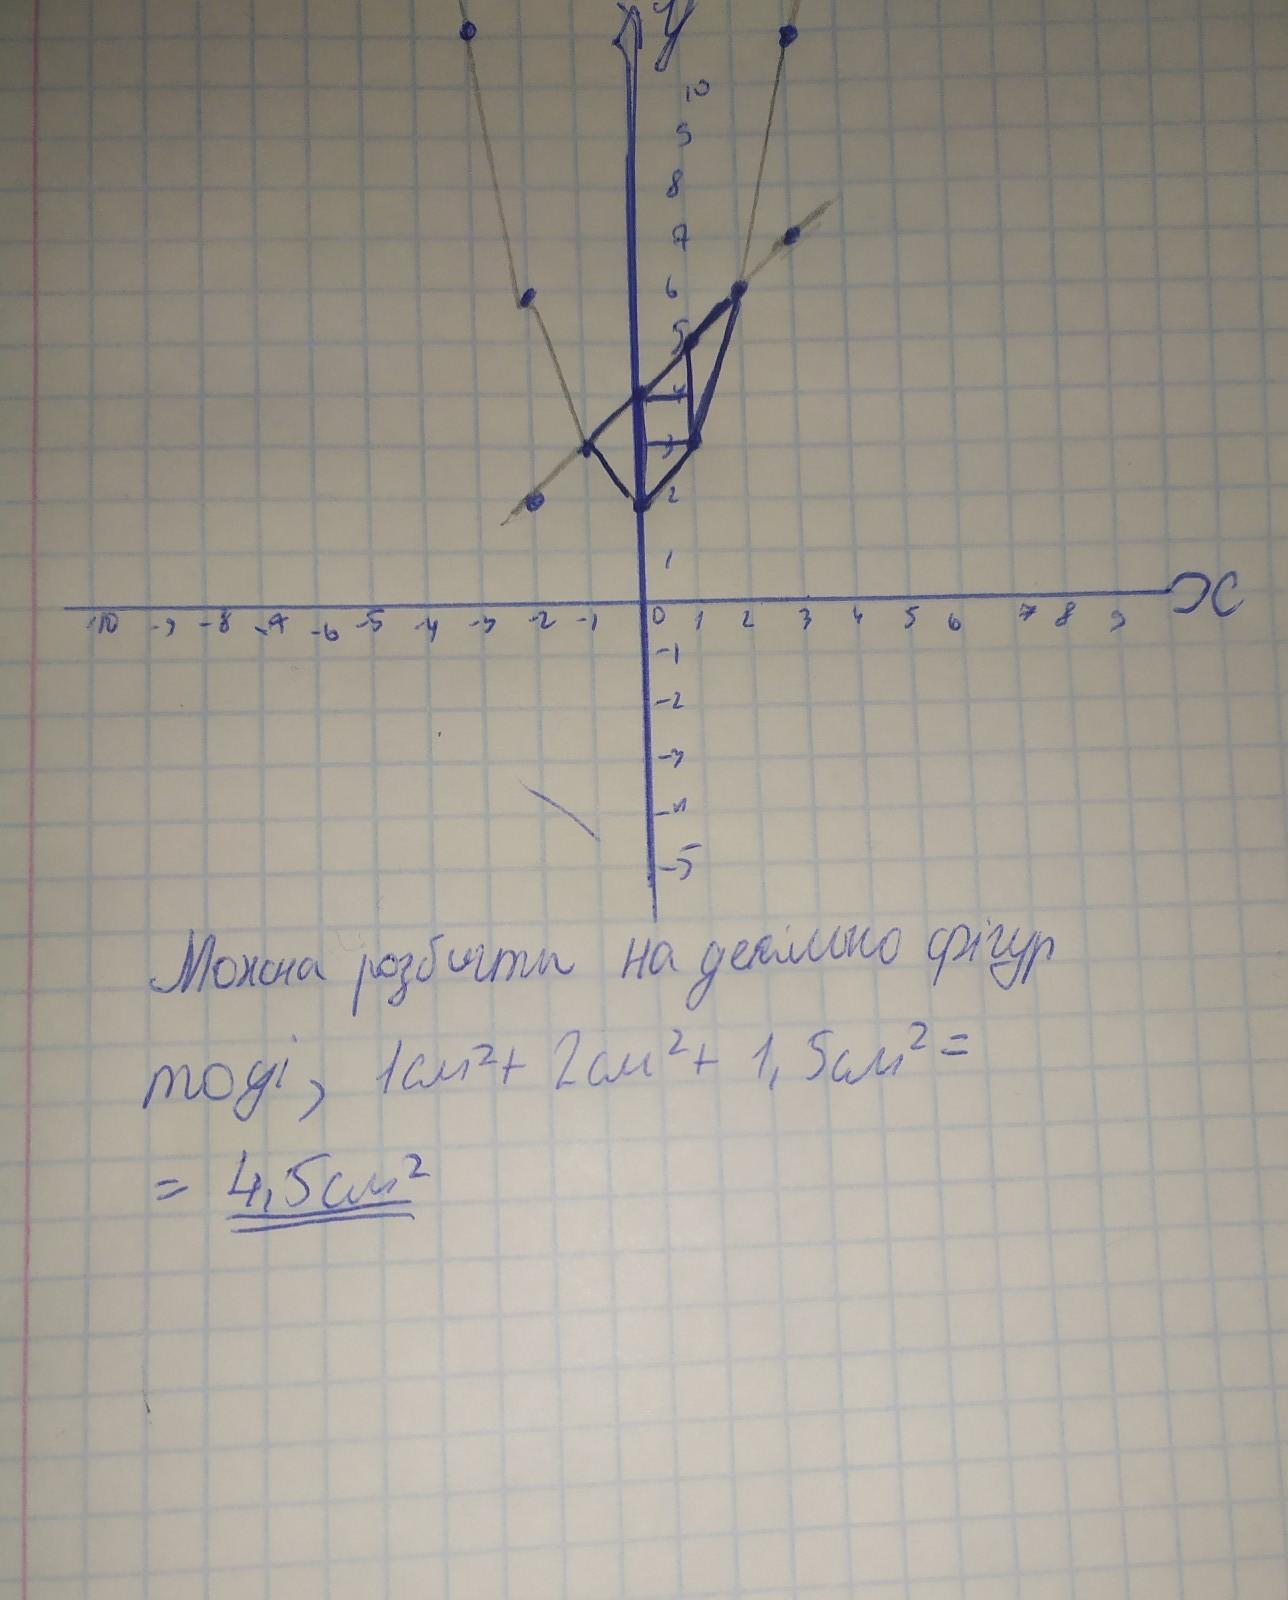 y
10
9
8
7
6
5
4
3
2
1
-10 -9 -8 -7 -6 -5 -4 -3 -2 -1 0 1 2 3 4 5 6 7 8 9 x
-1
-2
-3
-4
-5
Можна розбити на декілько фігур
тоді, 1см²+ 2см²+ 1,5см²=
= 4,5см²